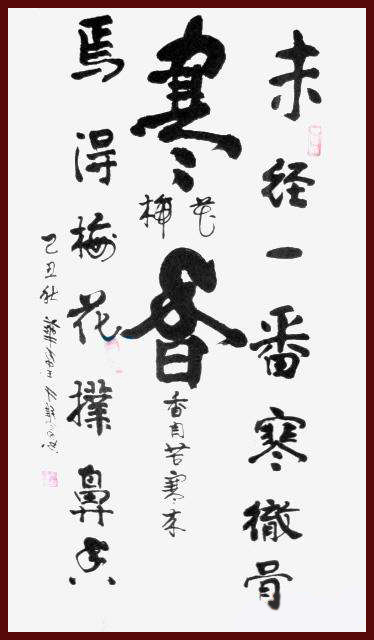 未経一番寒徹骨
寒香
梅花
香自苦寒来
焉得梅花撲鼻香
己丑秋